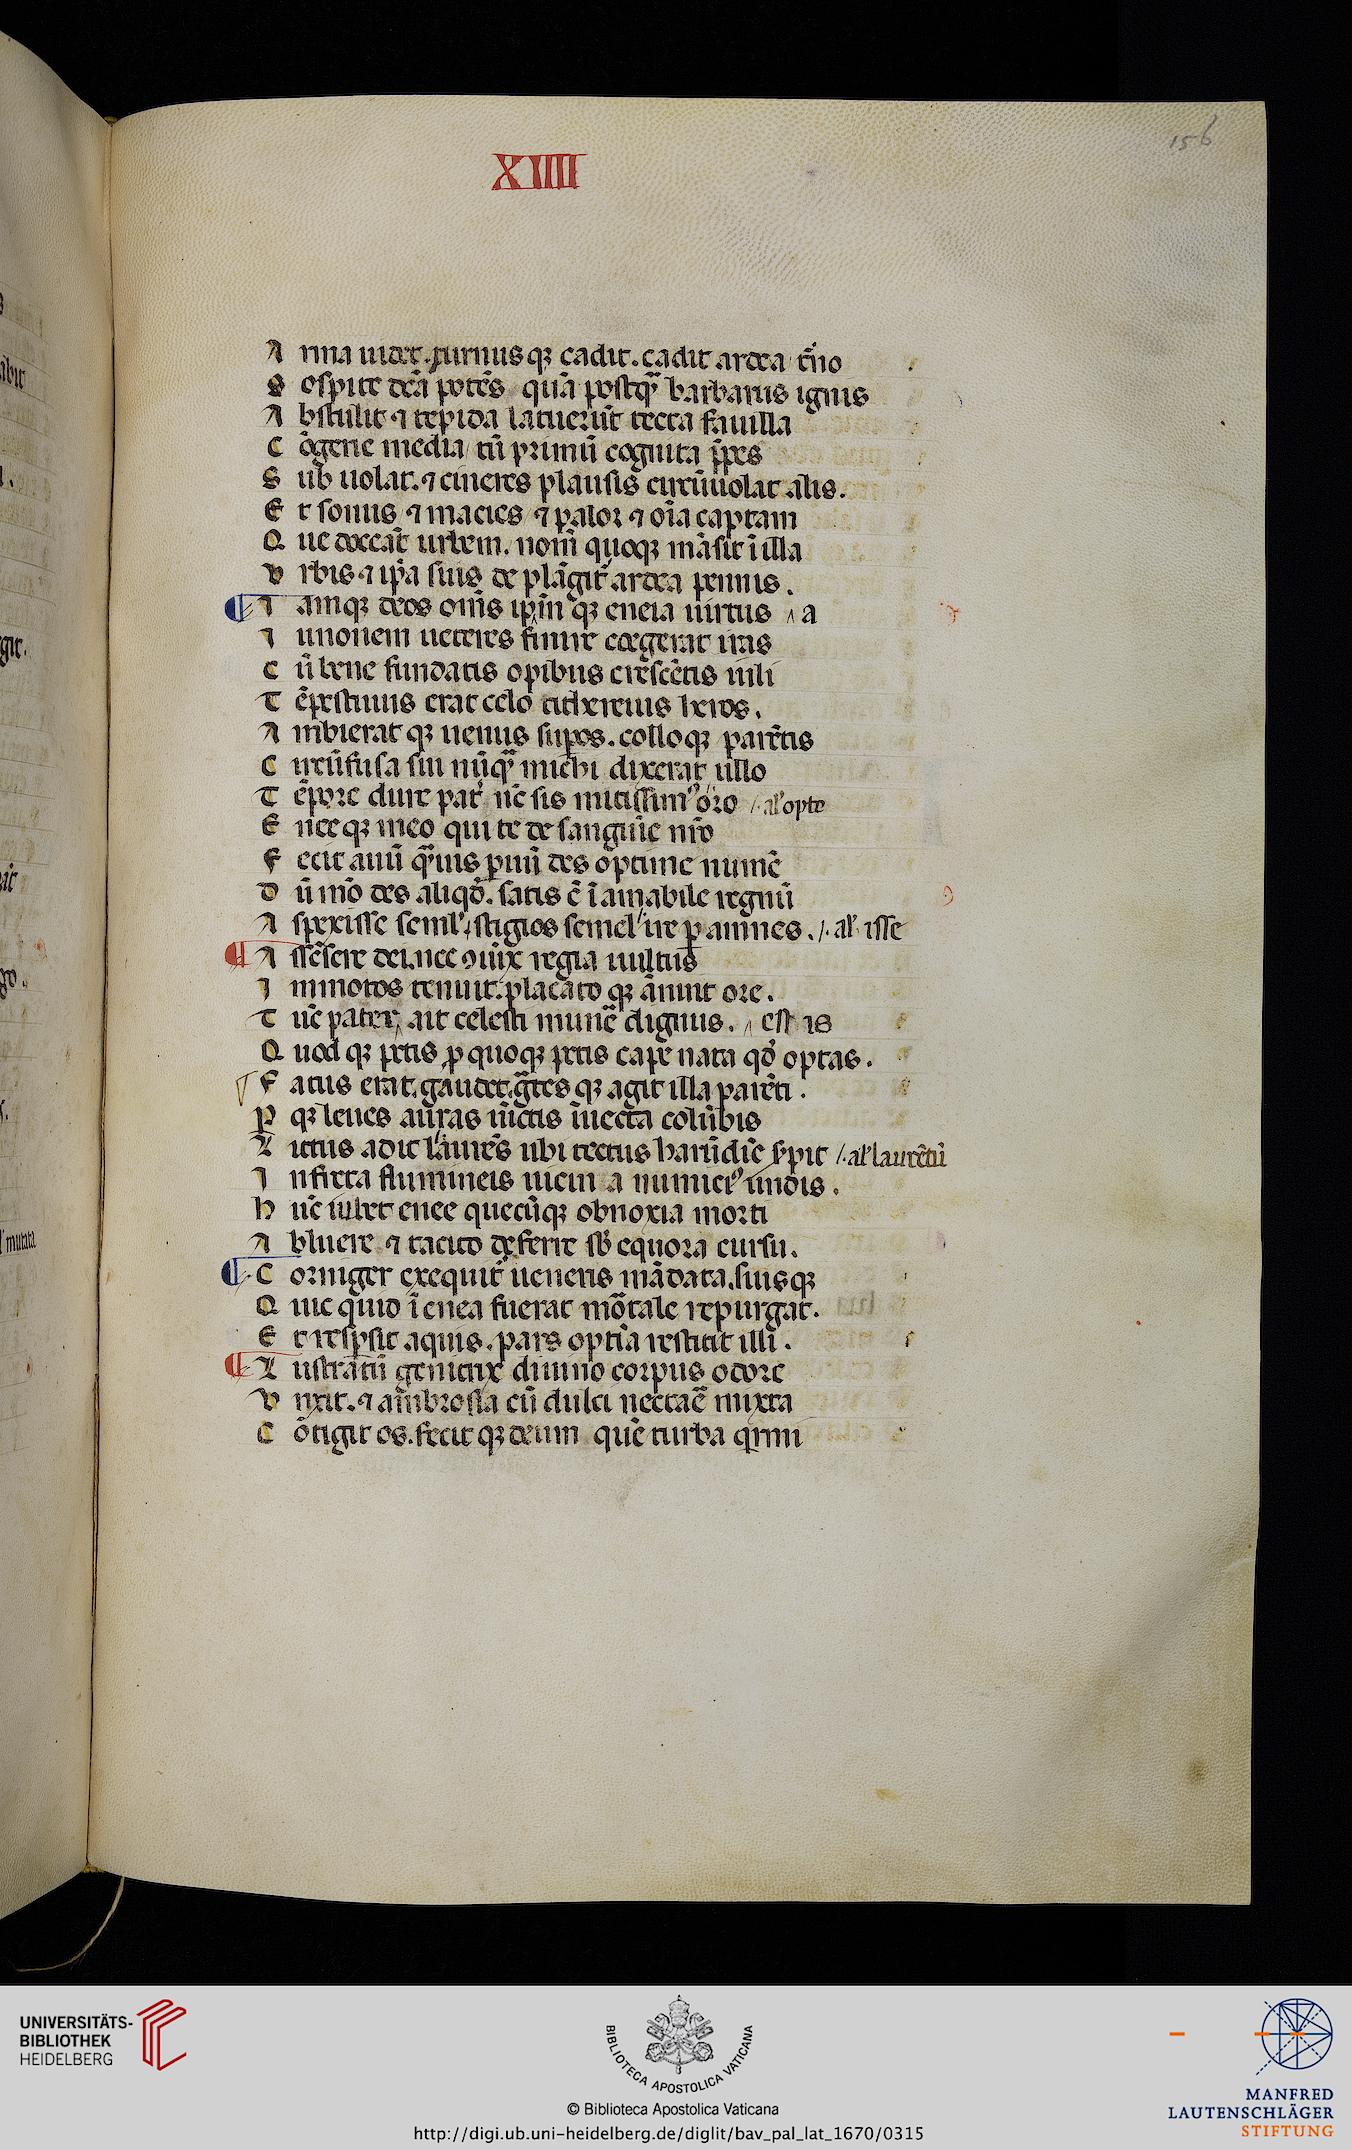 156
XIIII
A rma uidet. turnusqꝫ cadit. cadit ardea t̄no
S ospite dc̄a potēs quā postqᷓ barbarus ignis
A bstulit ⁊ tepida latuerūt tecta fauilla
C ōgerie media tū primū cognita p̄pes
S ub uolat. ⁊ cineres plausis circūuolat alis.
E t sonus ⁊ macies ⁊ palor ⁊ oīa captam
Q ue doceāt urbem. nom̄ quoqꝫ māsit ī illa
V rbis ⁊ ip̄a suis deplāgit᷑ ardea pennis.
I amqꝫ deos om̄s ip̄m qꝫ eneia uirtus a
I unonem ueteres finire coegerat iras
C ū bene fundatis opibus crescētis iuli
T ēpestiuus erat celo cithereius heros.
A mbierat qꝫ uenus suꝑos. collo qꝫ parētis
C ircūfusa sui nūqᷓ michi dixerat ullo
T ēpore dure pat̄ nūc sis mitissimꝰ oro /. al' opto
E nee qꝫ meo qui te de sanguīe nr̄o
F ecit auū qᷓuis ꝑuū des optime numē
D ūmō des aliqd̄. satis ē īamabile regnū
A spexisse semͥl' stigios semel ire ꝑ amnes. /. al' isse
A ssēsere dei. nec ꝯiūx regia uultus
I mmotos tenuit. placato qꝫ ānuit ore.
T ūc pater, ait celesti munē dignus. est is
Q uod qꝫ petis ꝓ quoqꝫ petis cape nata qd̄ optas.
F atus erat. gaudet. gᷓtes qꝫ agit illa parēti.
P qꝫ leues auras iūctis īuecta colūbis
L ittus adit laurēs ubi tectus harūdīe s̄pit /. al' laurētū
I nfirta flumineis uicina numiciꝰ undis.
H ūc iubet enee quecūqꝫ obnoxia morti
A bluere ⁊ tacito deferre sb̄ equora cursu.
C orniger exequit᷑ ueneris mādata. suisqꝫ
Q uicquid ī enea fuerat mōtale repurgat.
E t respsit aquis. pars optīa restitit illi.
L ustratū genitrix diuino corpus odore
V nxit. ⁊ am̄brosia cū dulci nectaē mixta
C ōtigit os. fecit qꝫ deum quē turba qͥrini
UNIVERSITÄTS-
BIBLIOTHEK
HEIDELBERG
BIBLIOTECA APOSTOLICA VATICANA
© Biblioteca Apostolica Vaticana
http://digi.ub.uni-heidelberg.de/diglit/bav_pal_lat_1670/0315
MANFRED
LAUTENSCHLÄGER
STIFTUNG